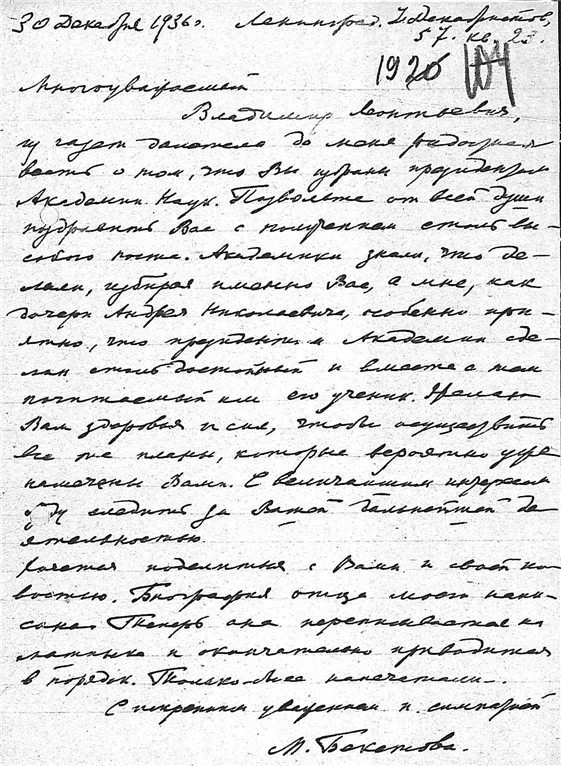 30 декабря 1936 г. Ленинград. ул. Декабристов,
57. кв. 23.
1926 104
Многоуважаемый
Владимир Леонтьевич,
из газет долетела до меня радостная
весть о том, что Вы избраны президентом
Академии Наук. Позвольте от всей души
поздравить Вас с получением столь вы-
сокого поста. Академики знали, что де-
лали, избирая именно Вас, а мне, как
дочери Андрея Николаевича, особенно при-
ятно, что президентом Академии сде-
лан столь достойный и вместе с тем
почитаемый им его ученик. Желаю
Вам здоровья и сил, чтобы осуществить
все те планы, которые вероятно уже
намечены Вами. С величайшим интересом
буду следить за Вашей дальнейшей де
ятельностью
Хочется поделиться с Вами и своей но
востью. Биография отца моего напи-
сана. Теперь она переписывается на
машинке и окончательно приводится
в порядок. Только бы напечатали.
С искренним уважением и симпатией
М. Бекетова.